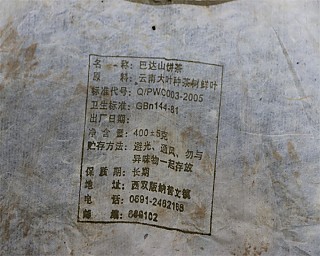 名 称：巴达山饼茶
原 料：云南大叶种茶树鲜叶
标准代号：Q/PWC003-2005
卫生标准：GBn144-81
出厂日期：
净 含 量：400±5克
贮存方法：避光、通风、勿与
异味物一起存放
保 质 期：长期
地 址：西双版纳普文镇
电 话：0691-2462168
邮 编：